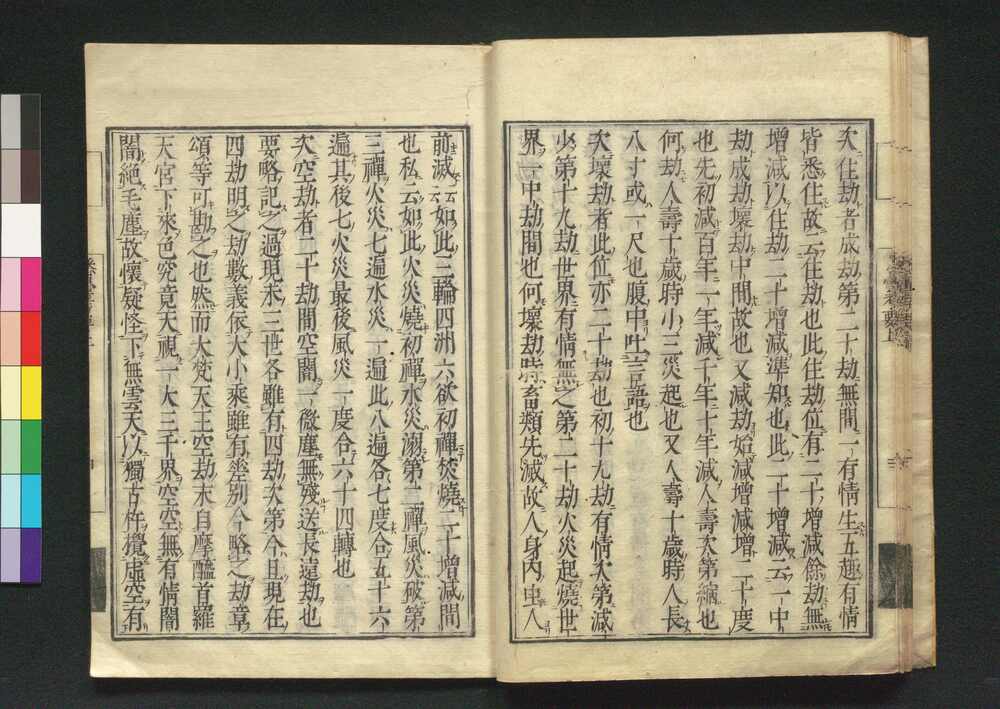 次住劫者成劫第二十劫無間一有情生五趣有情
皆悉住故云住劫也此住劫位有二十増減餘劫無
増減以住劫二十増減準知也此二十増減云一中
劫成劫壞劫中間故也又減劫始減増減増二十度
也先初減百年一年減千年十年減人壽次第縮也
何劫人壽十歳時小三災起也又人壽十歳時人長
八寸或一尺也腹中吐言語也
次壞劫者此位亦二十劫也初十九劫有情次第減
少第十九劫世界有情無之第二十劫火災起燒世
界一中劫間也何壞劫時畜類先滅故人身内虫人
前滅云云如此三輪四洲六欲初禪焚燒二十増減間
也私云如此火災燒初禪水災溺第二禪風災破第
三禪火災七遍水災一遍此八遍各七度合五十六
遍其後七火災最後風災一度合六十四轉也
次空劫者二十劫間空闇一微塵無殘送長遠劫也
要略記之過現未三世各雖有四劫次第今且現在
四劫明之劫數義依大小乘雖有差別今略之劫章
頌等可勘之也然而大梵天王空劫末自摩醯首羅
天宮下來色究竟天視一大三千界空空無有情闇
闇絶毛塵故懷疑怪下無雲天以獨古杵攪虚空有